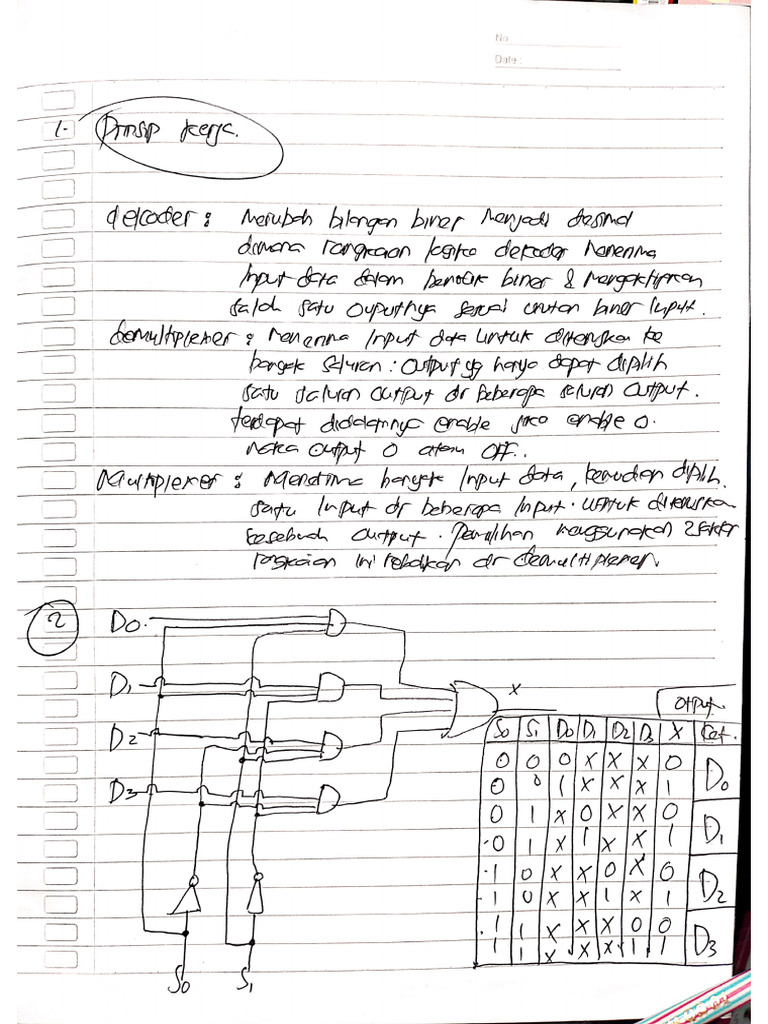 No
Date :
1. Prinsip kerja.
decoder : Merubah bilangan biner Menjadi desimal
dimana rangkaian logika dekoder Menerima
Input data dalam bentuk biner & Mengaktifkan
salah satu Ouputnya sesuai urutan biner Input.
demultiplexer : Menerima Input data untuk diteruskan ke
banyak saluran : Output yg hanya dapat dipilih
satu saluran output dr beberapa saluran Output.
terdapat didalamnya enable jika enable 0.
Maka Output 0 atau OFF.
Multiplexer : Menerima banyak Input data, kemudian dipilih.
satu Input dr beberapa Input. untuk diteruskan
kesebuah Output. Pemilihan menggunakan
rangkaian ini kebalikan dr demultiplexer.
2
D0
D1
D2
D3
X
S0 S1
Output
S0 S1 D0 D1 D2 D3 X Ket.
0 0 0 X X X 0 D0
0 0 1 X X X 1
0 1 X 0 X X 0 D1
0 1 X 1 X X 1
1 0 X X 0 X 0 D2
1 0 X X 1 X 1
1 1 X X X 0 0 D3
1 1 X X X 1 1